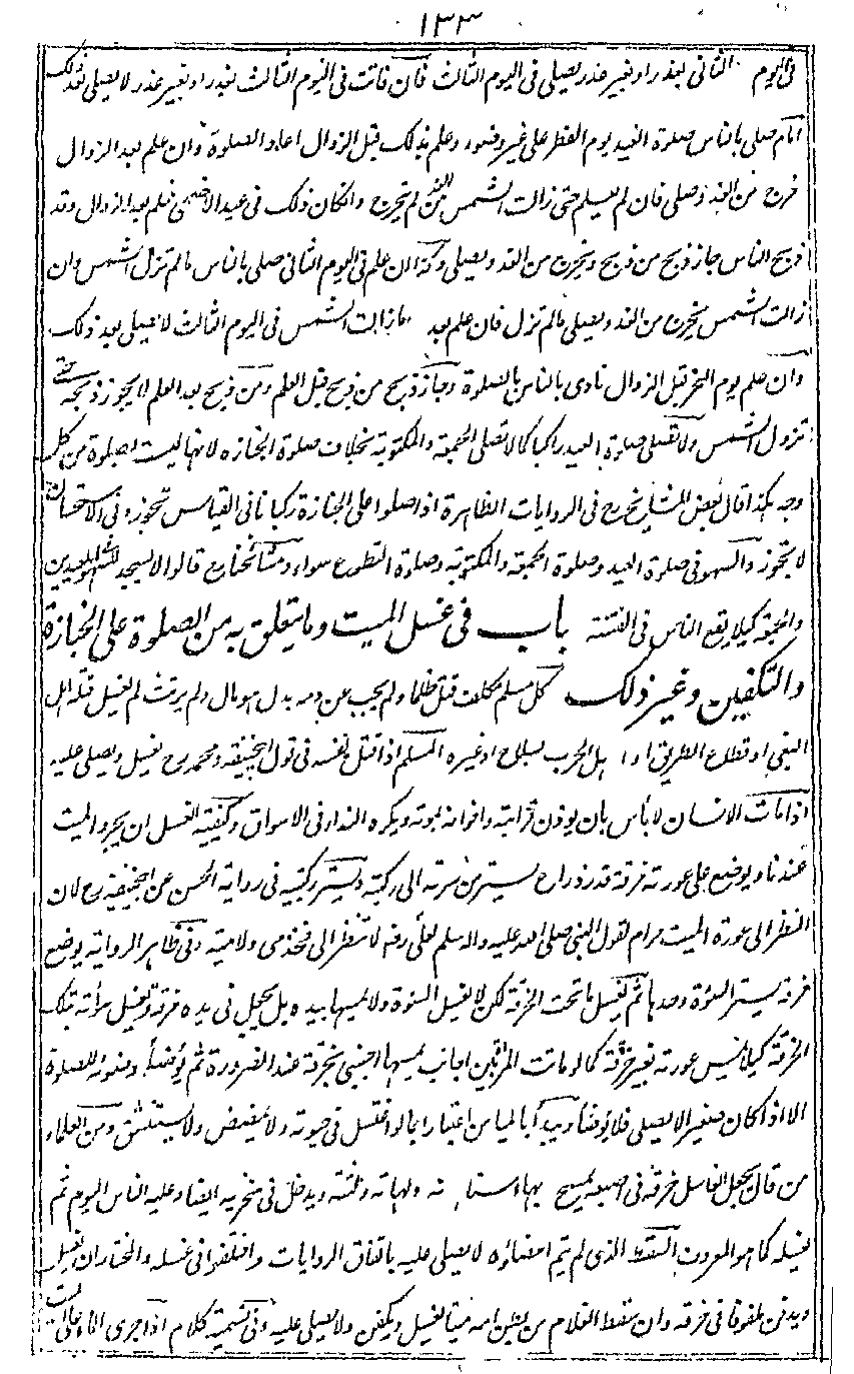 ١٣٣
فى اليوم الثانى بعذر او بغير عذر يصلى فى اليوم الثالث فان فاتت فى اليوم الثالث بعذر او بغير عذر لا يصلى بعد ذلك
امام صلى بالناس صلوة العيد يوم الفطر على غير وضوء وعلم بذلك قبل الزوال اعاد الصلوة وان علم بعد الزوال
خرج من الغد وصلى فان لم يعلم حتى زالت الشمس من الغد لم يخرج وانكان ذلك فى عيد الاضحى فعلم بعد الزوال وقد
ذبح الناس جاز ذبح من ذبح ويخرج من الغد ويصلى وكذا ان علم فى اليوم الثانى صلى بالناس مالم تزل الشمس وان
زالت الشمس يخرج من الغد ويصلى مالم تزل فان علم بعد مازالت الشمس فى اليوم الثالث لا يصلى بعد ذلك
وان علم يوم النحر قبل الزوال نادى بالناس بالصلوة وجاز ذبح من ذبح قبل العلم ومن ذبح بعد العلم لا يجوز ذبحه حتى
تزول الشمس ولا تصلى صلوة العيد راكبا كما لا تصلى الجمعة والمكتوبة بخلاف صلوة الجنازه لانها ليست بصلوة من كل
وجه هكذا قال بعض المشايخ رح فى الروايات الظاهرة اذا صلوا على الجنازة ركبانا فى القياس تجوز وفى الاستحسان
لا تجوز والسهو فى صلوة العيد وصلوة الجمعة والمكتوبة وصلوة التطوع سواء ومشائخنا رح قالوا لا يسجد للسهو فى العيدين
والجمعة كيلا يقع الناس فى الفتنة باب فى غسل الميت وما يتعلق به من الصلوة على الجنازة
والتكفين وغير ذلك كل مسلم مكلف قتل ظلما ولم يجب عن دمه بدل هو مال ولم يرتث لم يغسل قتله اهل
البغى او قطاع الطريق او اهل الحرب بسلاح او غيره المسلم اذا قتل نفسه فى قول ابيحنيفة ومحمد رح يغسل ويصلى عليه
اذا مات الانسان لا بأس بان يوذن قرابته واخوانه بموته ويكره النداء فى الاسواق وكيفية الغسل ان يجرد الميت
عندنا ويوضع على عورته خرقة قدر ذراع يستر من سرته الى ركبته ويستر ركبتيه فى رواية الحسن عن ابيحنيفة رح لان
النظر الى عورة الميت حرام لقول النبى صلى الله عليه واله وسلم لعلى رضه لا تنظر الى فخذ حى ولا ميت وفى ظاهر الرواية يوضع
خرقة يستر السوءة وحدها ثم يغسل ما تحت الخرقة لكن لا يغسل السوءة ولا يمسها بيده بل يجعل فى يده خرقة ويغسل سوأته بتلك
الخرقة كيلا يمس عورته بغير خرقة كما لو ماتت المرأة بين اجانب ييممها اجنبى بخرقة عند الضرورة ثم يوضأ وضوئه للصلوة
الا اذا كان صغيرا لا يصلى فلا يوضأ ويبدأ بالميامن اعتبارا بما لو اغتسل فى حيوته ولا يمضمض ولا يستنشق ومن العلماء
من قال يجعل الغاسل خرقة فى اصبعه يمسح بها اسنانه ولهاته ولثته ويدخل فى منخريه ايضا وعليه الناس اليوم ثم
يغسله كما هو المعروف السقط الذى لم يتم اعضاؤه لا يصلى عليه باتفاق الروايات واختلفوا فى غسله والمختار ان يغسل
ويدفن ملفوفا فى خرقة وان سقط الغلام من بطن امه ميتا يغسل ويكفن ولا يصلى عليه وفى تسميته كلام اذا جرى الماء على الميت